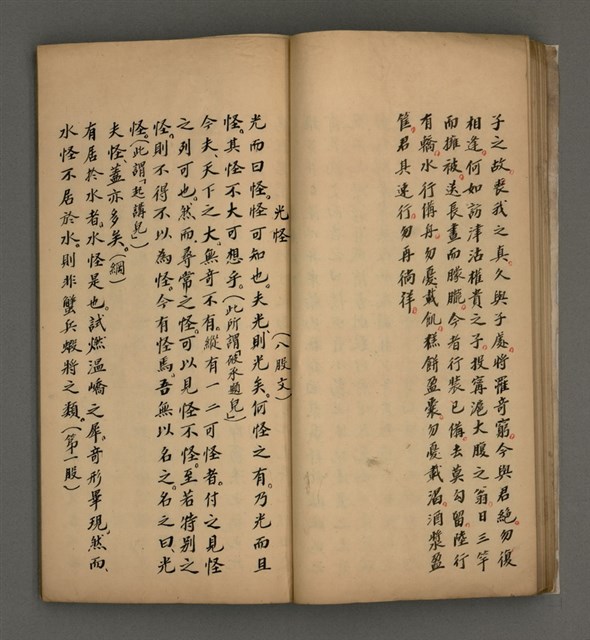 子之故喪我之真。久與子處將罹奇窮。今與君絕。勿復
相逢。何如訪津沽權貴之子。投甯滬大腹之翁。日三竿
而擁被。送長晝而朦朧。今者行裝已備。去莫勾留。陸行
有轎。水行備舟。勿憂載飢。糕餅盈橐。勿憂載渴。酒漿盈
筐。君其速行。勿再徜徉。
光怪 (八股文)
光而曰怪。怪可知也。夫光。則光矣。何怪之有。乃光而且
怪。其怪不大可想乎。(此所謂「破承題兒」)
今夫。天下之大。無奇不有。縱有一二可怪者。付之見怪
之列可也。然而尋常之怪。可以見怪不怪。至若特別之
怪。則不得不以為怪。今有怪焉。吾無以名之。名之曰。光
怪。(此謂「起講兒」)
夫怪蓋亦多矣。(綱)
有居於水者。水怪是也。試燃温嶠之犀。奇形畢現。然而、
水怪不居於水。則非蟹兵蝦將之類。(第一股)